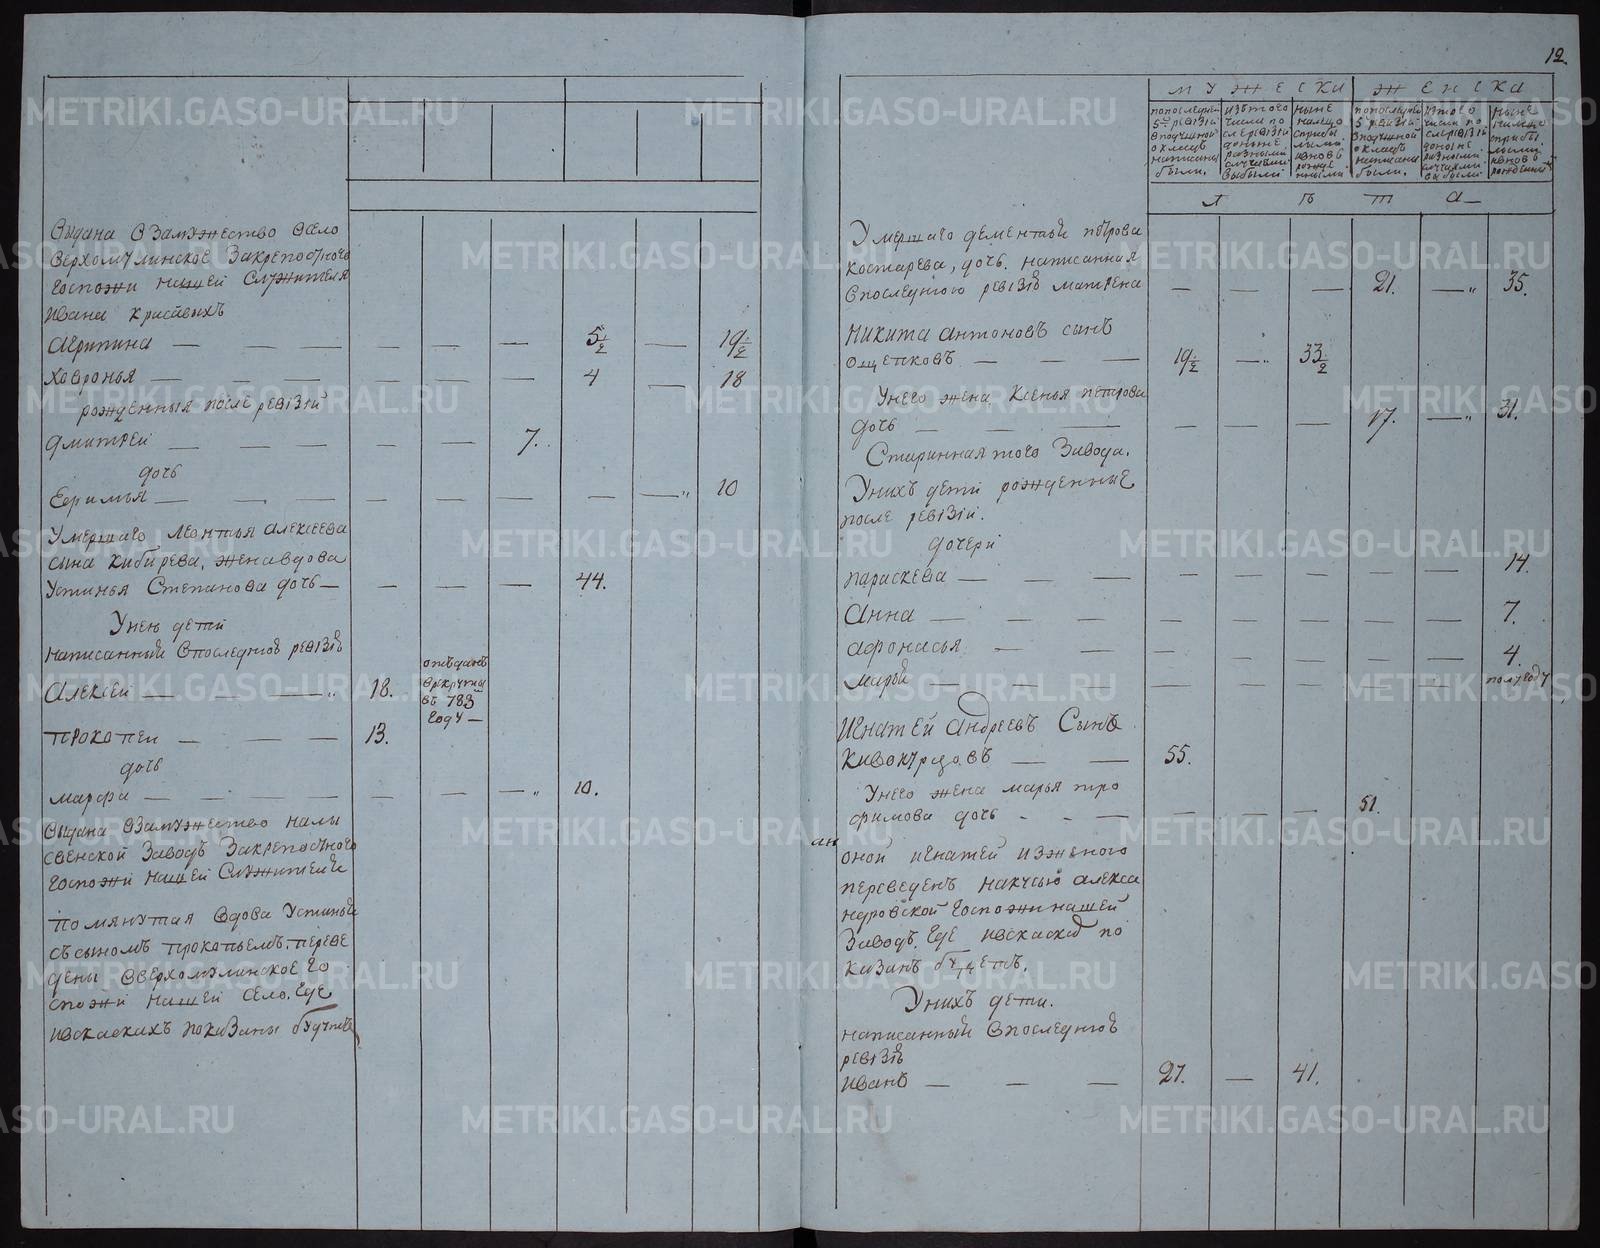 выдана взамужество всело
верхомулинское закрепостного
госпожи нашей служителя
ивана
агрипина — — — — — — 5½ — 19½
ховронья — — — — — — 4 — 18
рожденныя после ревізіи
дмитреи — — — — — 7.
дочь
ефимья — — — — — — — — 10
Умершаго леонтья алексеева
сына кибирева, жена вдова
Устинья Степанова дочь — — — — 44.
Унеи дети
написанныи впоследнюю ревізію
алексеи — — — 18. отъданъ
врекруты
въ 783
году —
прокопеи — — — 13.
дочь
марфа — — — — — — — 10.
выдана взамужество налы
свенской заводъ закрепостного
госпожи нашей служителя
помянутая вдова Устинья
съсыномъ прокопьемъ, переве
дены вверхомулинское го
спожи нашей село. где
ивсказкахъ показаны будутъ
12.
мужеска женска
попоследней
5й ревізіи
вподушной
окладъ
написаны
были.
изътого
числа по
слеревізіи
доныне
разными
случаями
выбыли
ныне
налицо
сприбы
лыми
ивновь
рожде
нными
попоследней
5 ревізіи
вподушной
окладъ
написаны
были.
изтого
числа по
слеревізіи
доныне
разными
случаями
выбыли
ныне
налицо
сприбы
лыми
ивновь
рожденными
л ъ т а —
Умершаго дементья петрова
костарева, дочь. написанная
впоследнюю ревізію матрена — — — 21. — 35.
никита антоновъ сынъ
ощепковъ — — — 19½ — 33½
Унего жена Ксенья петрова
дочь — — — — — — 17. — 31.
Старинная того завода.
Унихъ дети рожденные
после ревізіи.
дочери
параскева — — — — — — — — 14.
анна — — — — — — — — 7.
афонасья — — — — — — — — 4.
марья — — — — — — — — полугоду
игнатей андреевъ сынъ
кивокурцовъ — — 55.
Унего жена марья тро
фимова дочь — — — — — — 51.
оной игнатей изженою
переведенъ накусью алекса
ндровской госпожи нашей
заводъ. где ивсказкѣ по
казанъ будетъ.
Унихъ дети.
написанныи впоследнюю
ревізію
иванъ — — — 27. — 41.
METRIKI.GASO-URAL.RU